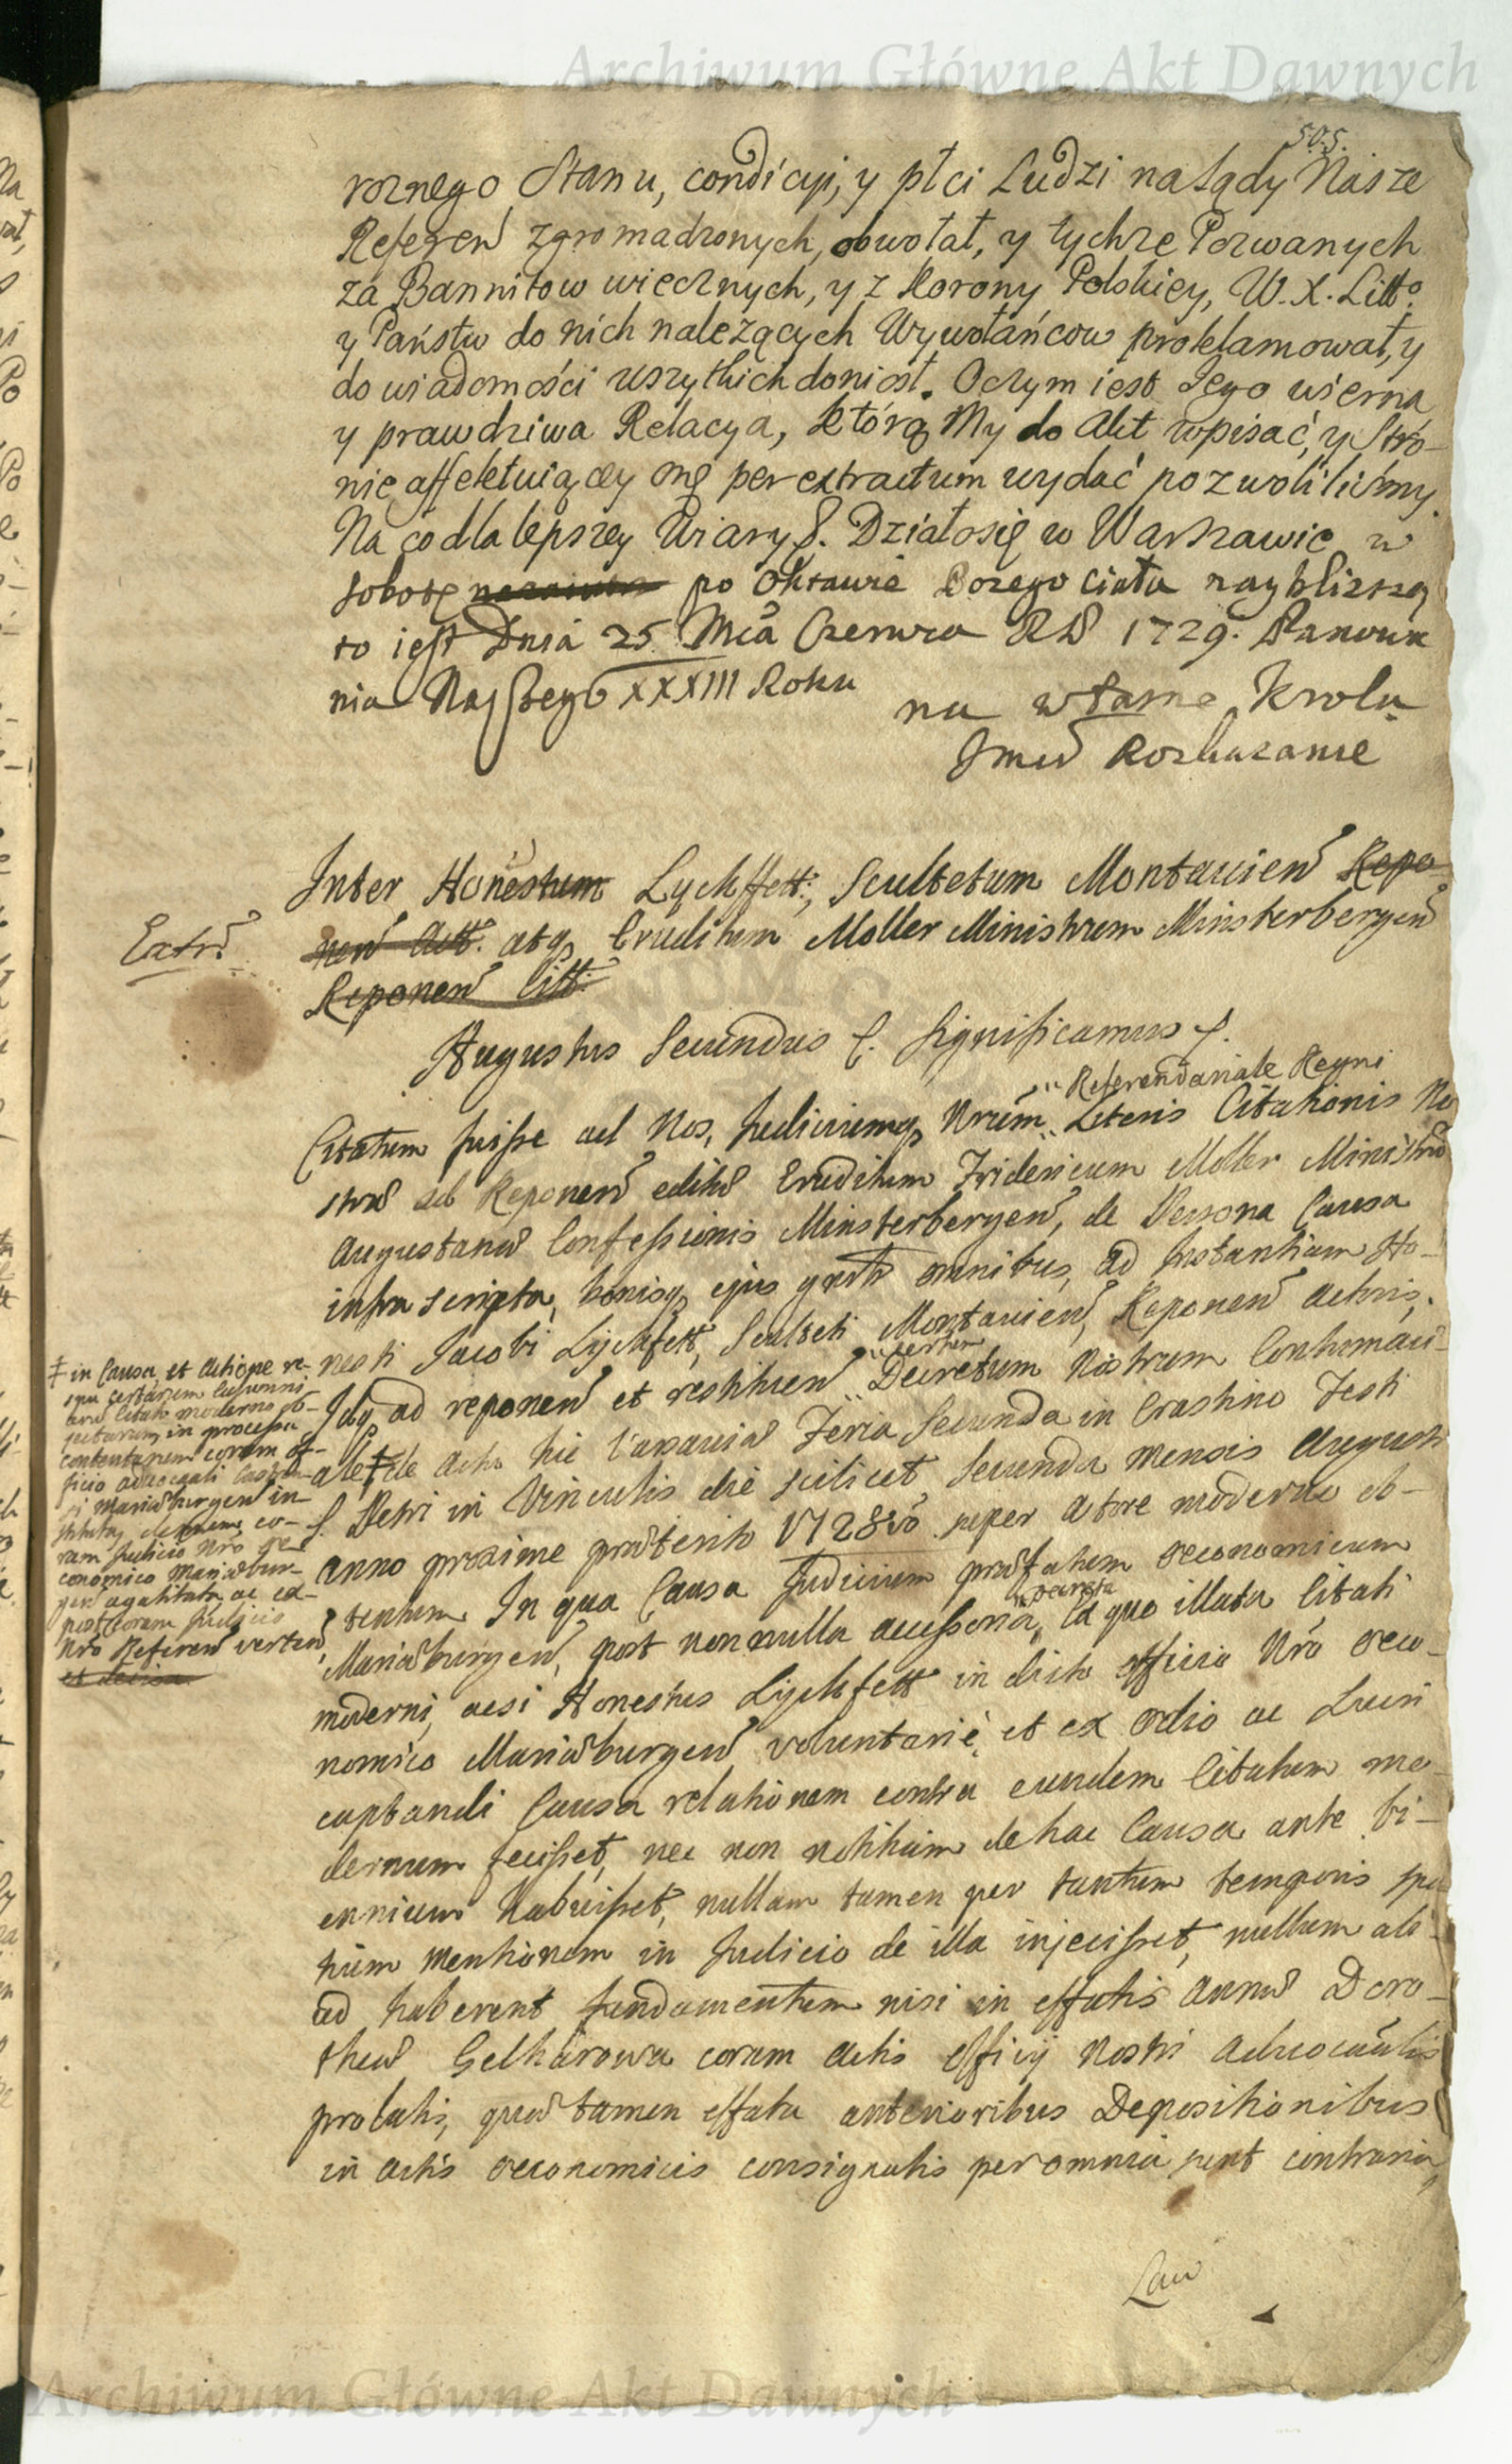 Archiwum Główne Akt Dawnych
505.
roznego Stanu, condicyi, y płci Ludzi na Sądy Nasze
Referen zgromadzonych, obwołał, y tychze Pozwanych
za Bannitow wiecznych, y z Korony Polskiey, W. X. Litto
y Państw do nich należących Wywołańcow proklamował, y
do wiadomości wszytkich doniosł. Oczym iest Jego wierna
y prawdziwa Relacya, którą My do Akt wpisać, y Stro-
nie affektuiącey onę per extractum wydać pozwoliliśmy.
Na co dla lepszey Wiary &. Działo się w Warszawie w
sobotę po Oktawie Bozego Ciała naybliższą
to iest Dnia 25 Mca Czerwca RP 1729. Panowa
nia Naszego XXXIII Roku
na własne Krola
Jmci Rozkazanie
Inter Honestum Lyckfett, Scultetum Montauien Repo-
nen Act. atq Eruditum Moller Ministrum Minsterbergen
Reponen Citt.
Extr.
Augustus Secundus &. Significamus &.
Referendariale Regni
Citatum fuisse ad Nos, Judiciumq Nrum Literis Citationis No
stra ad Reponen editis Eruditum Fridericum Moller Ministrum
Augustana Confessionis Minsterbergen, de Persona Causa
infra scripta, bonisq ejus gnrlr omnibus, ad Instantiam Ho-
nesti Jacobi Lyckfett, Sculteti Montauien, Reponen Actoris,
certum
Idq ad reponen et restituen Decretum Nostrum Contumaci-
ale de Actu hic Varsavia Feria Secunda in Crastino Festi
S. Petri in Vinculis die scilicet, secunda mensis Augusti
anno proxime praterito 1728vo super Actore moderno ob-
tentum. In qua Causa Judicium prafatum oeconomicum
decreta
Mariaburgen, post nonnulla accessoria, ex quo illata Citati
moderni, acsi Honestus Lyckfett in dicto officio Nro oeco-
nomico Mariaburgen voluntarie et ex odio ac Lucri
captandi Causa relationem contra eundem Citatum mo-
dernum fecisset, nec non notitiam de hac Causa ante bi-
ennium habuisset, nullam tamen per tantum temporis spa
tium mentionem in Judicio de illa injecisset, nullum ali-
ud haberent fundamentum nisi in effatis Anna Doro-
thea Gelharowa coram Actis Officij Nostri Advocatialis
prolatis, qua tamen effata anterioribus Depositionibus
in Actis oeconomicis consignatis per omnia sunt contraria,
ǂ in Causa et Actione re-
contentarum coram of-
ficio advocatiali
si Mariaburgen in-
stituta, demum co-
ram Judicio Nro oe-
conomico Mariabur-
gen agitata, ac ex-
post coram Judicio
Nro Referen verten,
et decisa
Archiwum Główne Akt Dawnych